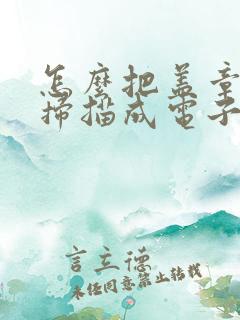 怎麼把蓋章
掃描成電子
言立德
未任同意禁止轉載